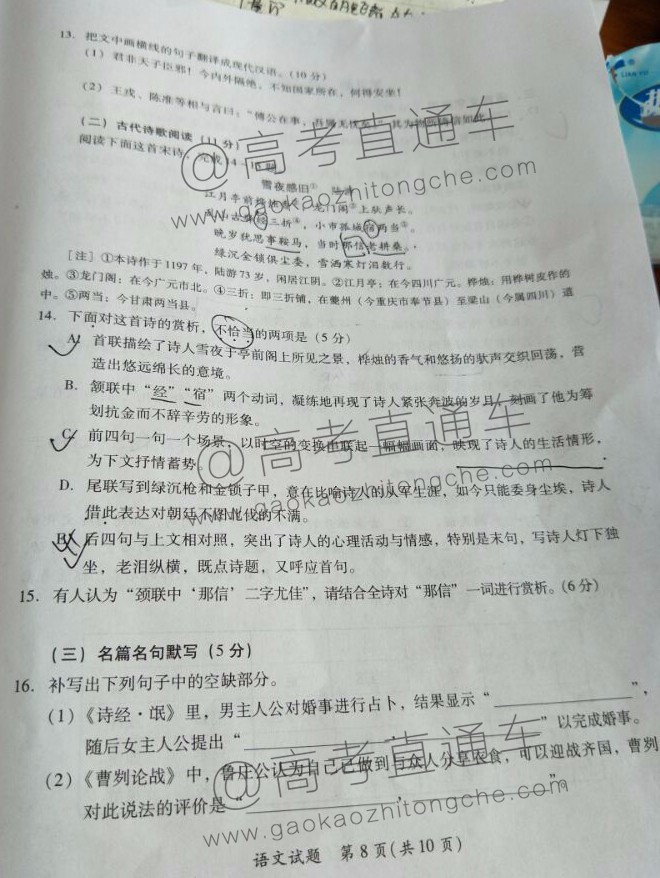 13. 把文中画横线的句子翻译成现代汉语。(10分)
(1) 君非天子臣邪！今内外隔绝，不知国家所在，何得安坐！
(2) 王戎、陈准等相与言曰：“傅公在事，吾属无忧矣！”其为物所倚信如此。
(二) 古代诗歌阅读 (11分)
阅读下面这首宋诗，完成14
雪夜感旧① 陆游
江月亭前 龙门阁③上驮声长。
山古 经三折④，小市孤城宿两当⑤。
晚岁犹思事鞍马，当时那信老耕桑。
绿沉金锁俱尘委，雪洒寒灯泪数行。
[注] ①本诗作于1197年，陆游73岁，闲居江阴。②江月亭：在今四川广元。桦烛：用桦树皮作的
烛。③龙门阁：在今广元市北。④三折：即三折铺，在夔州（今重庆市奉节县）至梁山（今属四川）道
中。⑤两当：今甘肃两当县。
14. 下面对这首诗的赏析，不恰当的两项是 (5分)
A. 首联描绘了诗人雪夜于亭前阁上所见之景，桦烛的香气和悠扬的驮声交织回荡，营
造出悠远绵长的意境。
B. 颔联中“经”“宿”两个动词，凝练地再现了诗人紧张奔波的岁月，刻画了他为筹
划抗金而不辞辛劳的形象。
C. 前四句一句一个场景，以时空的变换串联起一幅幅画面，映现了诗人的生活情形，
为下文抒情蓄势。
D. 尾联写到绿沉枪和金锁子甲，意在比喻诗人的从军生涯，如今只能委身尘埃，诗人
借此表达对朝廷不图北伐的不满。
E. 后四句与上文相对照，突出了诗人的心理活动与情感，特别是末句，写诗人灯下独
坐，老泪纵横，既点诗题，又呼应首句。
15. 有人认为“颈联中‘那信’二字尤佳”，请结合全诗对“那信”一词进行赏析。(6分)
(三) 名篇名句默写 (5分)
16. 补写出下列句子中的空缺部分。
(1)《诗经·氓》里，男主人公对婚事进行占卜，结果显示“________”，
随后女主人公提出“________”以完成婚事。
(2)《曹刿论战》中，鲁庄公认为自己已做到与众人分享衣食，可以迎战齐国，曹刿
对此说法的评价是“________，________”。
语文试题 第8页(共10页)
@高考直通车
www.gaokaozhitongche.com
@高考直通车
www.gaokaozhitongche.com
@高考直通车
www.gaokaozhitongche.com
LIAN YU